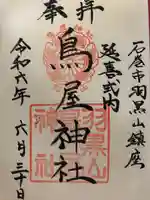 奉拝
石巻市羽黒山鎮座
延喜式内
鳥屋神社
令和六年六月三十日